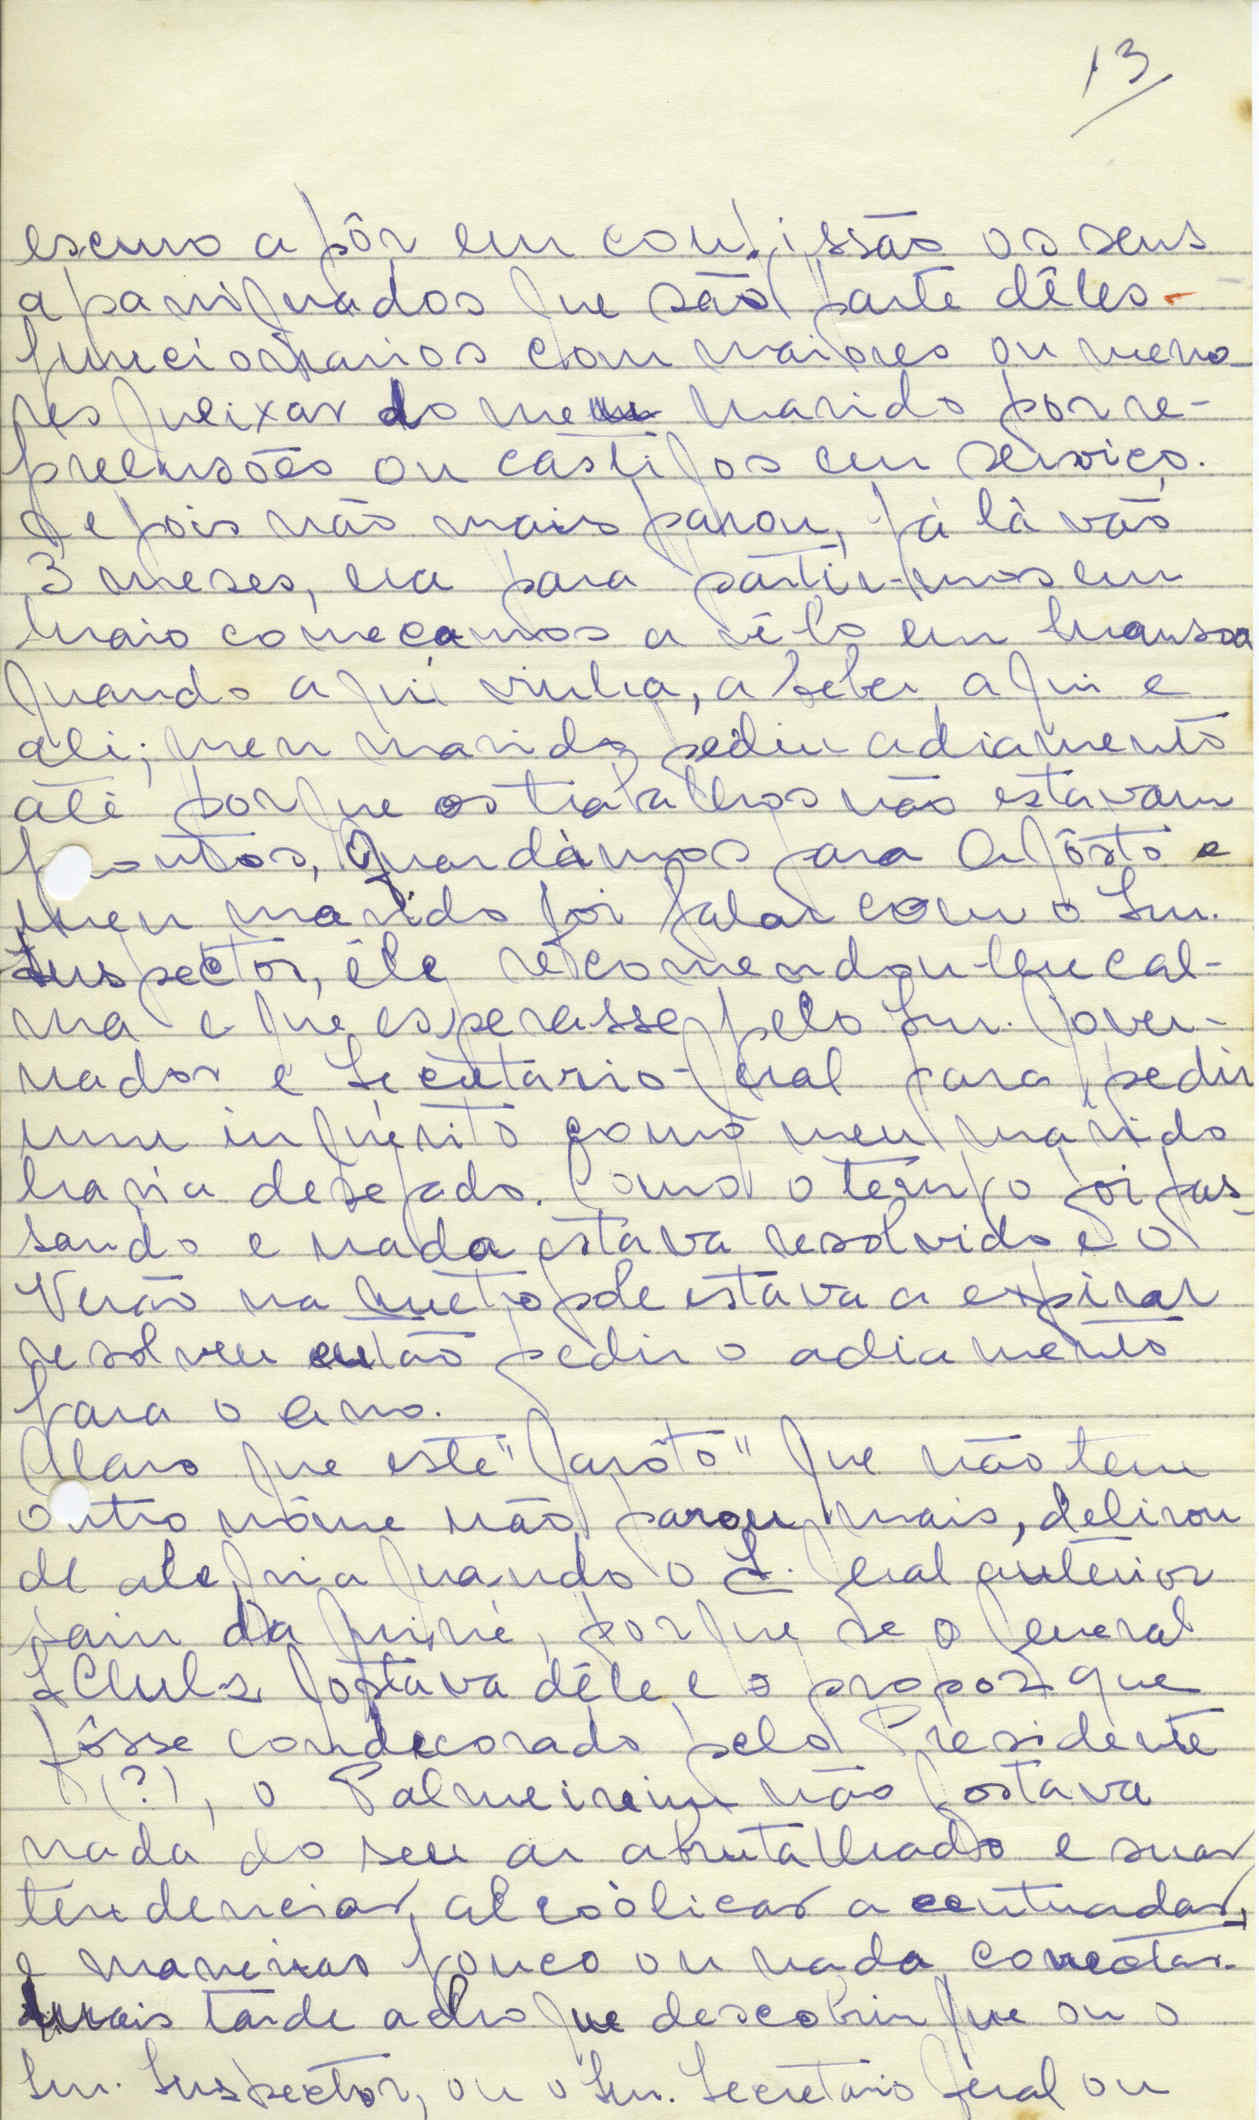 13
esmo a pôr em confissão os seus
apaniguados que são parte dêles
funcionarios com maiores ou meno-
res queixas do meu marido por re-
preensões ou castigos em serviço.
Depois não mais parou, já lá vão
3 meses, era para partir-mos em
Maio começamos a vê-lo em Mansoa
quando aqui vinha, a beber aqui e
ali; meu marido pediu adiamento
até porque os trabalhos não estavam
prontos, guardàmos para Agôsto e
meu marido foi falar com o Snr.
Inspector, êle recomendou-lhe cal-
ma e que esperasse pelo Snr. Gover-
nador e Secretario-geral para pedir
um inquérito como meu marido
havia desejado. Como o tempo foi pas-
sando e nada estava resolvido e o
Verão na Metropole estava a expirar
resolveu então pedir o adiamento
para o ano.
Claro que este "garôto" que não tem
outro nôme não parou mais, delirou
de alegria quando o S. Geral anterior
saiu da Guiné, porque se o General
Schulz gostava dêle e o propoz que
fôsse condecorado pelo Presidente
(?), o Palmeirim não gostava
nada do seu ar abrutalhado e suas
tendencias alcoólicas acentuadas,
e maneiras pouco ou nada corectas.
Mais tarde acho que descobriu que ou o
Snr. Inspector, ou o Snr. Secretario geral ou